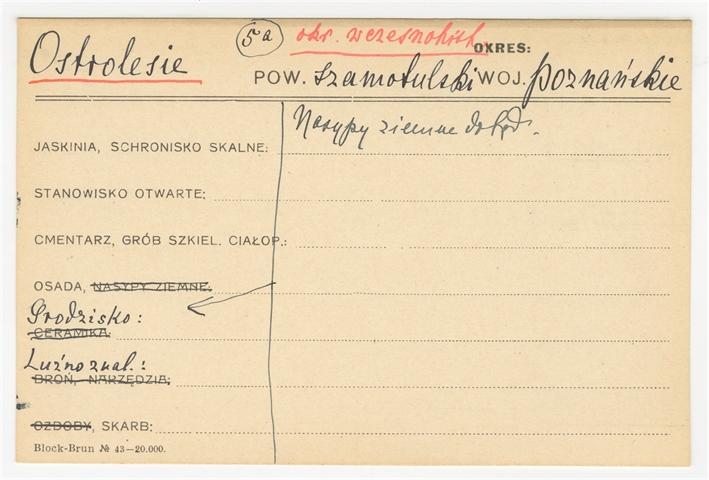 5a okr. wczesnohist OKRES:
Ostrolesie POW. szamotulski WOJ. poznańskie
Nasypy ziemne
JASKINIA, SCHRONISKO SKALNE:
STANOWISKO OTWARTE:
CMENTARZ, GRÓB SZKIEL. CIAŁOP.:
OSADA, NASYPY ZIEMNE:
Grodzisko:
CERAMIKA:
Luźno znal.:
BROŃ, NARZĘDZIA:
OZDOBY, SKARB:
Block-Brun № 43—20.000.